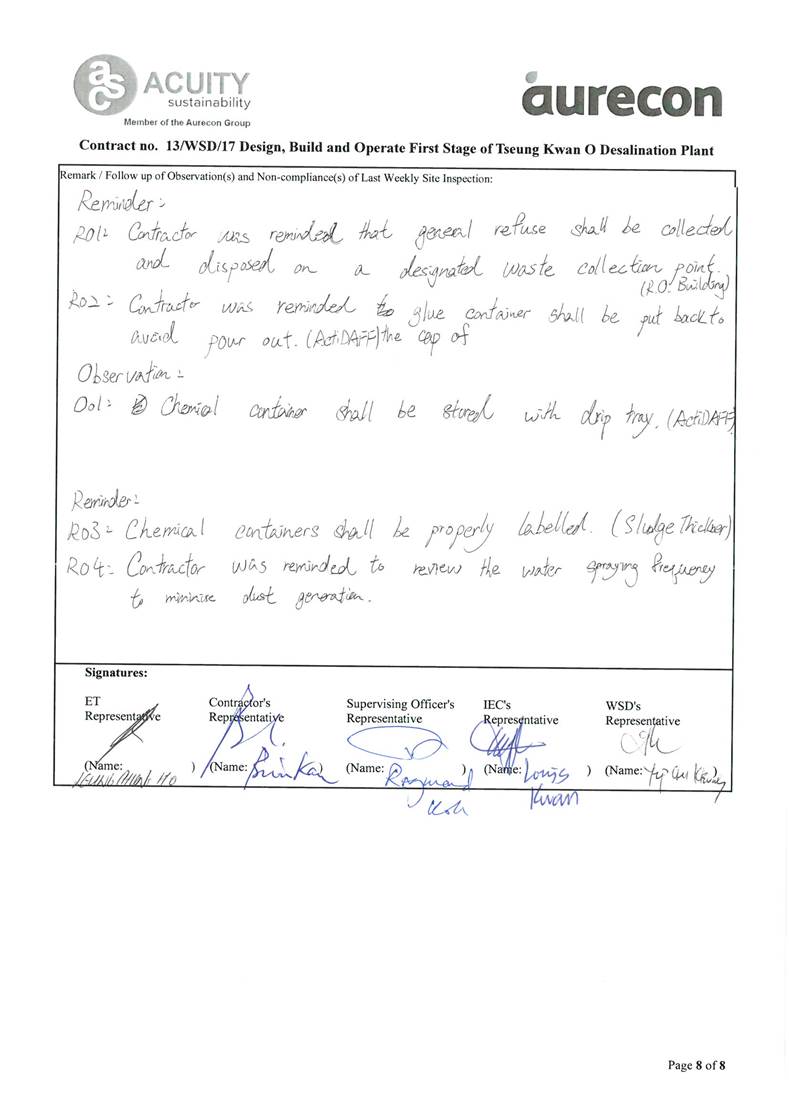 asc ACUITY
sustainability
Member of the Aurecon Group
aurecon
Contract no. 13/WSD/17 Design, Build and Operate First Stage of Tseung Kwan O Desalination Plant
Remark / Follow up of Observation(s) and Non-compliance(s) of Last Weekly Site Inspection:
Reminder:
R01: Contractor was reminded that general refuse shall be collected
and disposed on a designated waste collection point.
(R.O. Building)
R02: Contractor was reminded to glue container shall be put back to
avoid pour out. (ActiDAFF) the cap of
Observation:
O01: Chemical container shall be stored with drip tray. (ActiDAFF)
Reminder:
R03: Chemical containers shall be properly labelled. (Sludge Thicker)
R04: Contractor was reminded to review the water spraying frequency
to minimise dust generation.
Signatures:
ET Representative
Contractor's Representative
Supervising Officer's Representative
IEC's Representative
WSD's Representative
(Name: )
(Name: )
(Name: Raymond Koh )
(Name: Louis Kwan )
(Name: )
Page 8 of 8